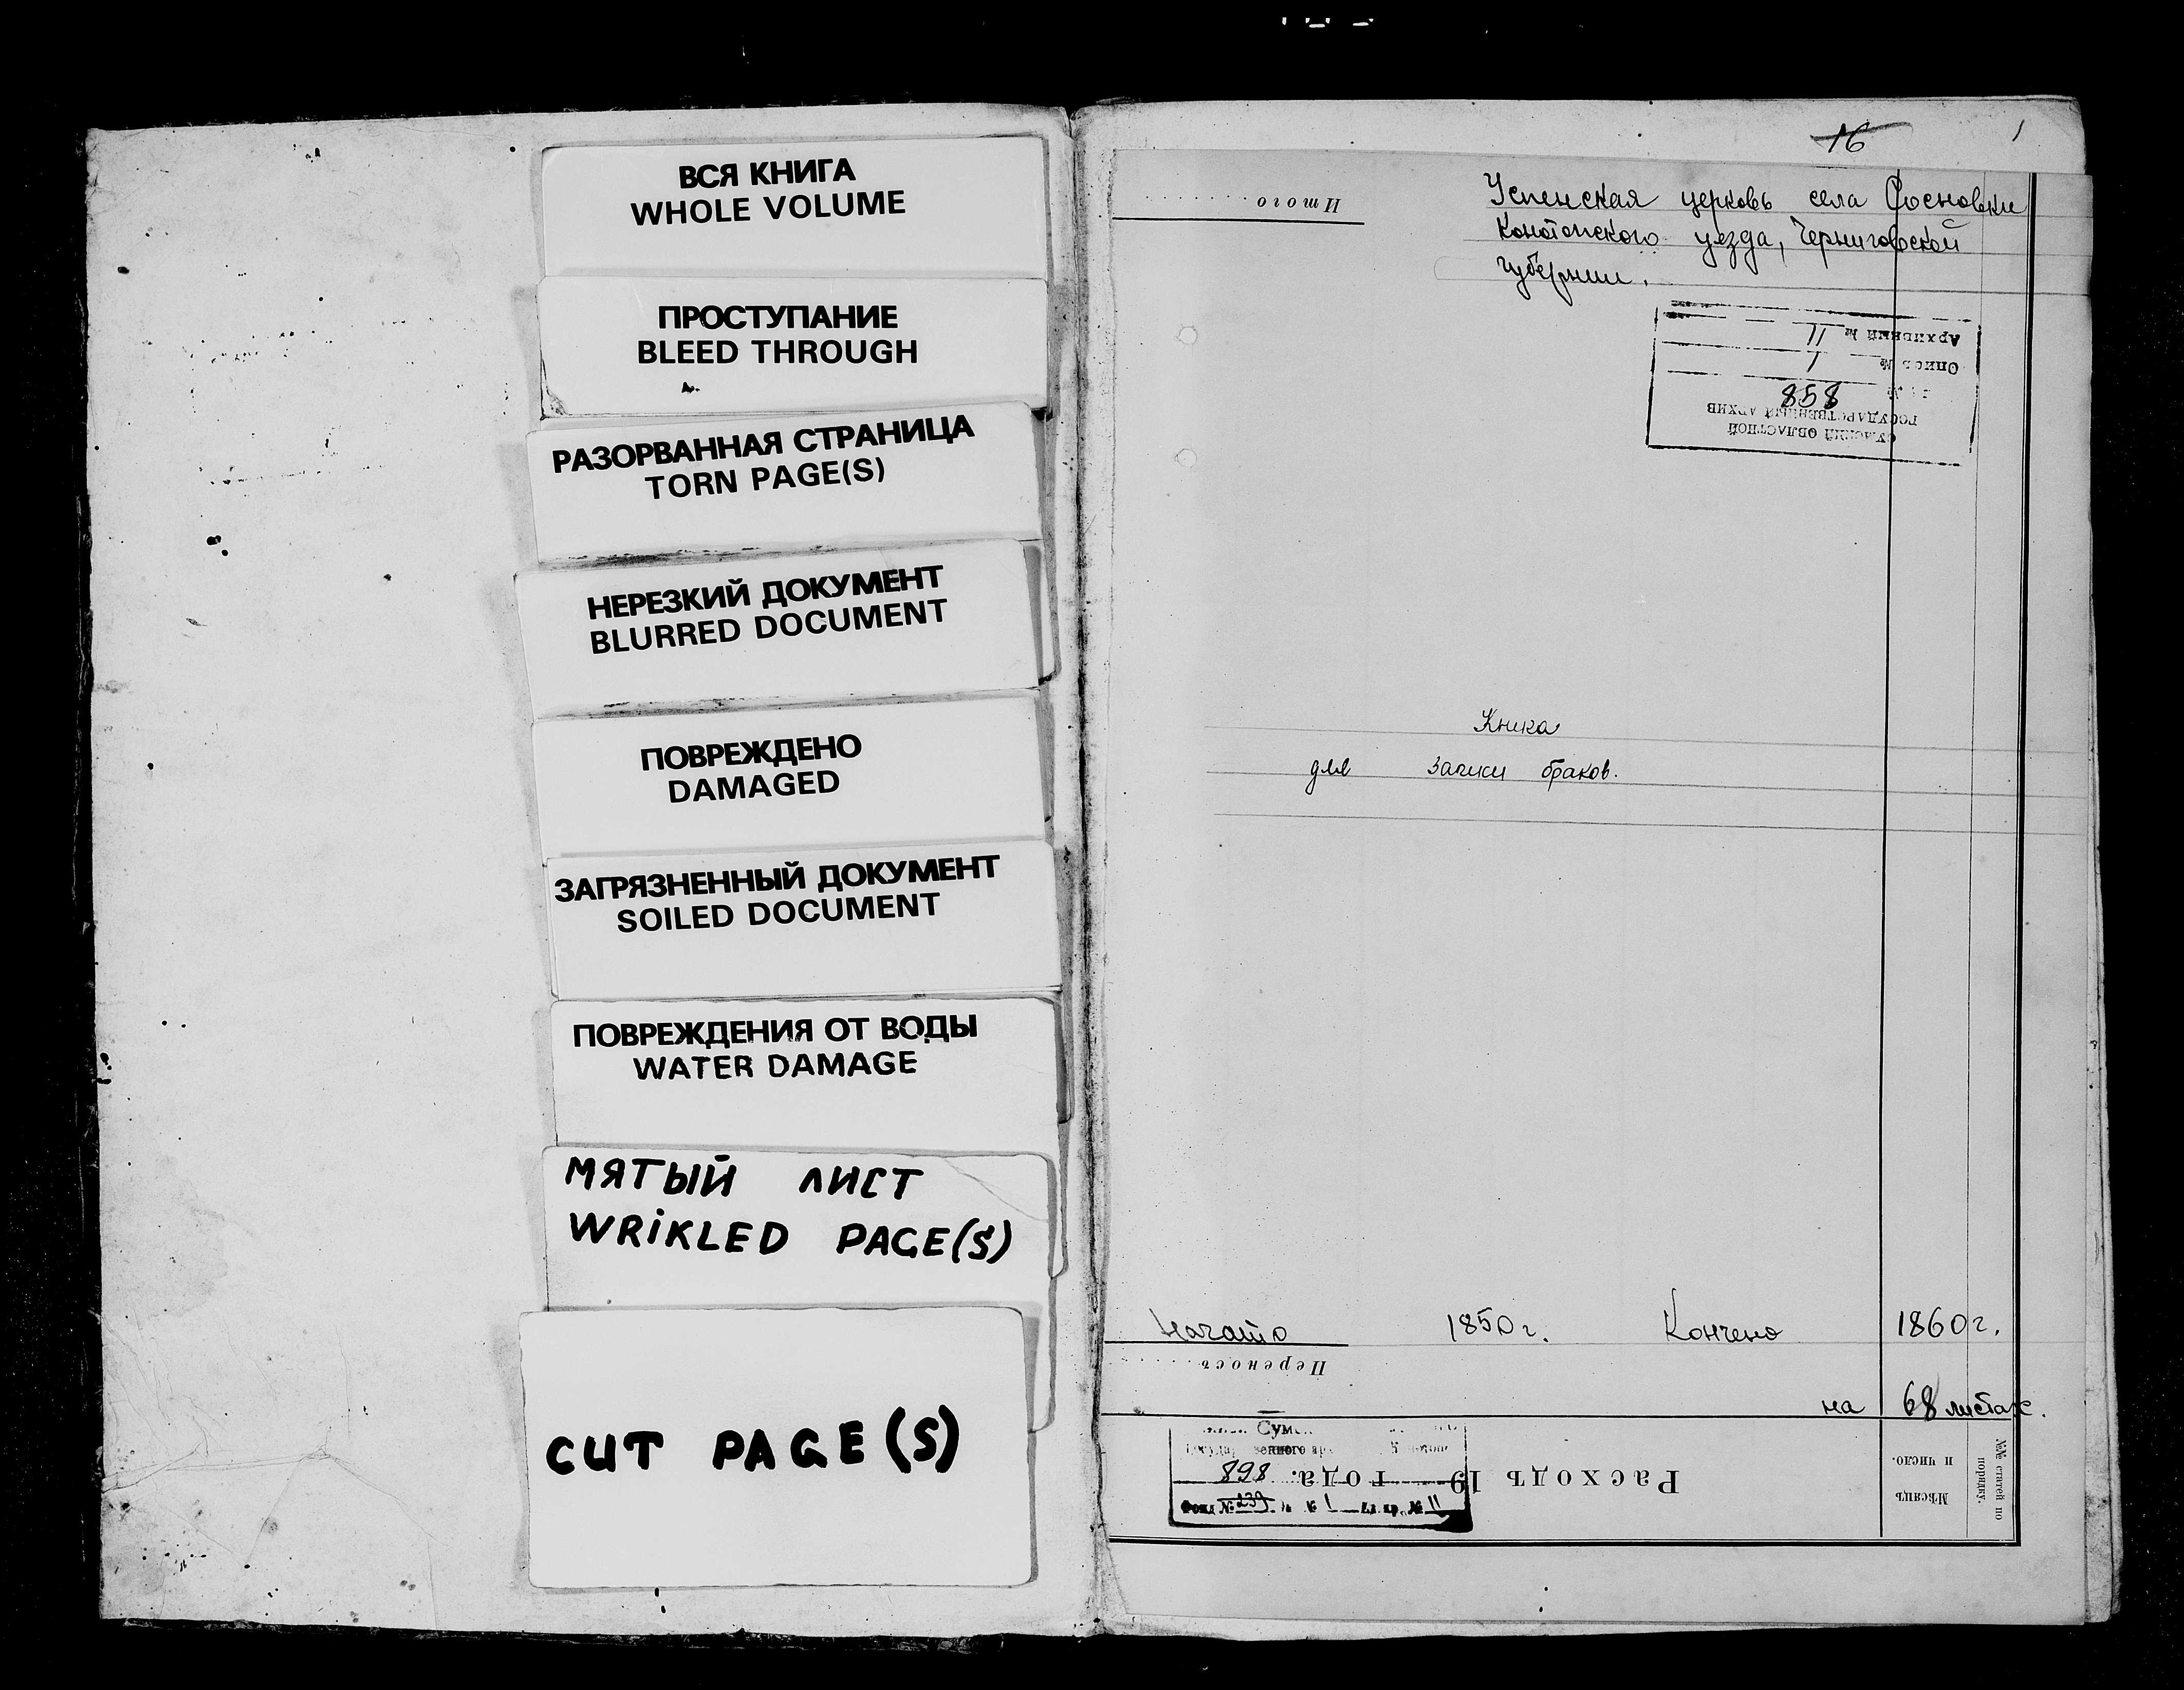 ВСЯ КНИГА
WHOLE VOLUME
ПРОСТУПАНИЕ
BLEED THROUGH
РАЗОРВАННАЯ СТРАНИЦА
TORN PAGE(S)
НЕРЕЗКИЙ ДОКУМЕНТ
BLURRED DOCUMENT
ПОВРЕЖДЕНО
DAMAGED
ЗАГРЯЗНЕННЫЙ ДОКУМЕНТ
SOILED DOCUMENT
ПОВРЕЖДЕНИЯ ОТ ВОДЫ
WATER DAMAGE
МЯТЫЙ ЛИСТ
WRIKLED PAGE(S)
CUT PAGE(S)
16 1
Итого
Успенская церковь села Сосновки
Конотопского уезда, Черниговской
губернии.
СУМСКИЙ ОБЛАСТНОЙ
ГОСУДАРСТВЕННЫЙ АРХИВ
№ 858
Опись № 1
Архивный № 11
Книга
для записи браков.
Начато 1850 г. Кончено 1860 г.
Переносъ
на 68 листах.
Сум
венного
898
Фонд № 239 № 1 Ед. хр. № 11
Расходъ 19 года.
Мѣсяцъ
и число.
№№ статей по
порядку.